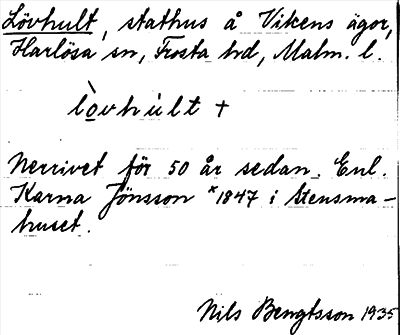 Lövhult, stathus å Vikens ägor,
Harlösa sn, Frosta hd, Malm. l.
lòvhúlt +
Nerrivet för 50 år sedan. Enl.
Karna Jönsson *1847 i Stensma-
huset.
Nils Bengtsson 1935